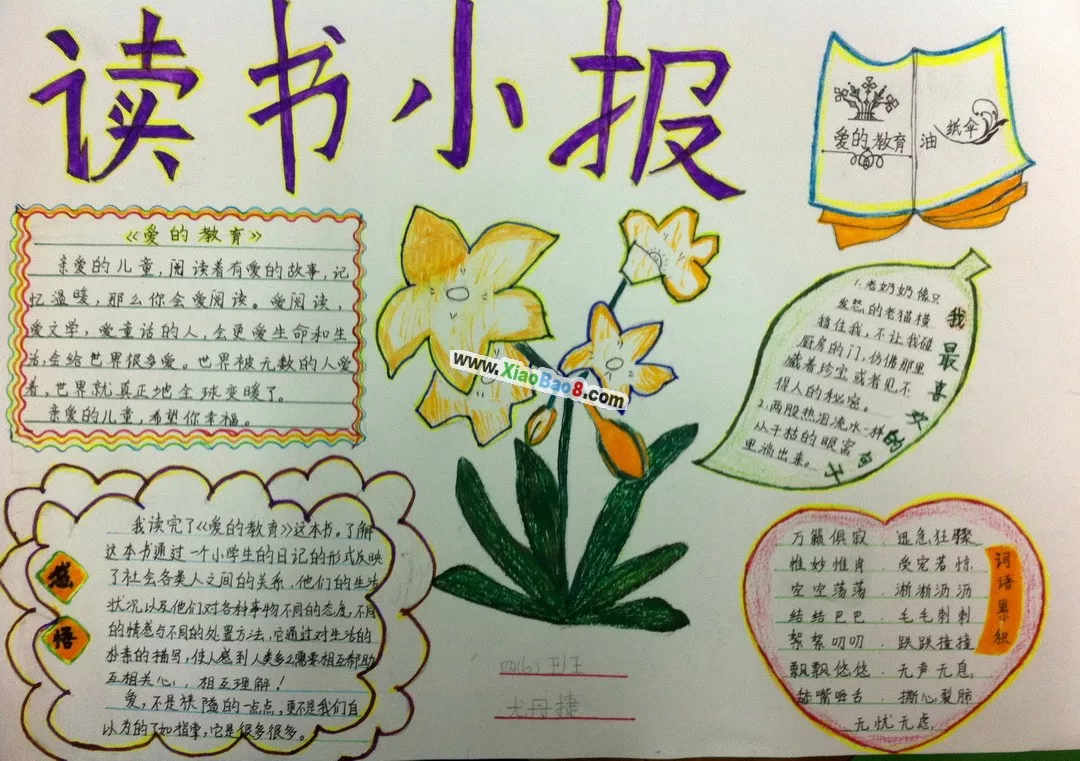 读书小报
爱的教育
油
纸伞
《爱的教育》
亲爱的儿童,阅读着有爱的故事,记
忆温暖,那么你会爱阅读。爱阅读,
爱文学,爱童话的人,会更爱生命和生
活,会给世界很多爱。世界被无数的人爱
着,世界就真正地全球变暖了。
亲爱的儿童,希望你幸福。
www.XiaoBao8.com
我最喜欢的句子
1.老奶奶像只
发怒的老猫横
挡住我,不让我碰
厨房的门,仿佛那里
藏着珍宝或者见不
得人的秘密。
2.两股热泪流水一样
从干枯的眼窝
里淌出来。
感悟
我读完了《爱的教育》这本书。了解
这本书通过一个小学生的日记的形式反映
了社会各类人之间的关系,他们的生活
状况以及他们对各种事物不同的态度,不同
的情感与不同的处置方法,它通过对生活的
朴素的描写,使人感到人类多么需要相互帮助
互相关心,相互理解!
爱,不是狭隘的一点点,更不是我们自
以为的了如指掌,它是很多很多。
词语累积
万籁俱寂 迅急狂骤
惟妙惟肖 受宠若惊
空空落落 淅淅沥沥
结结巴巴 毛毛刺刺
絮絮叨叨 跌跌撞撞
飘飘悠悠 无声无息
舐嘴咂舌 撕心裂肺
无忧无虑
四(6)班